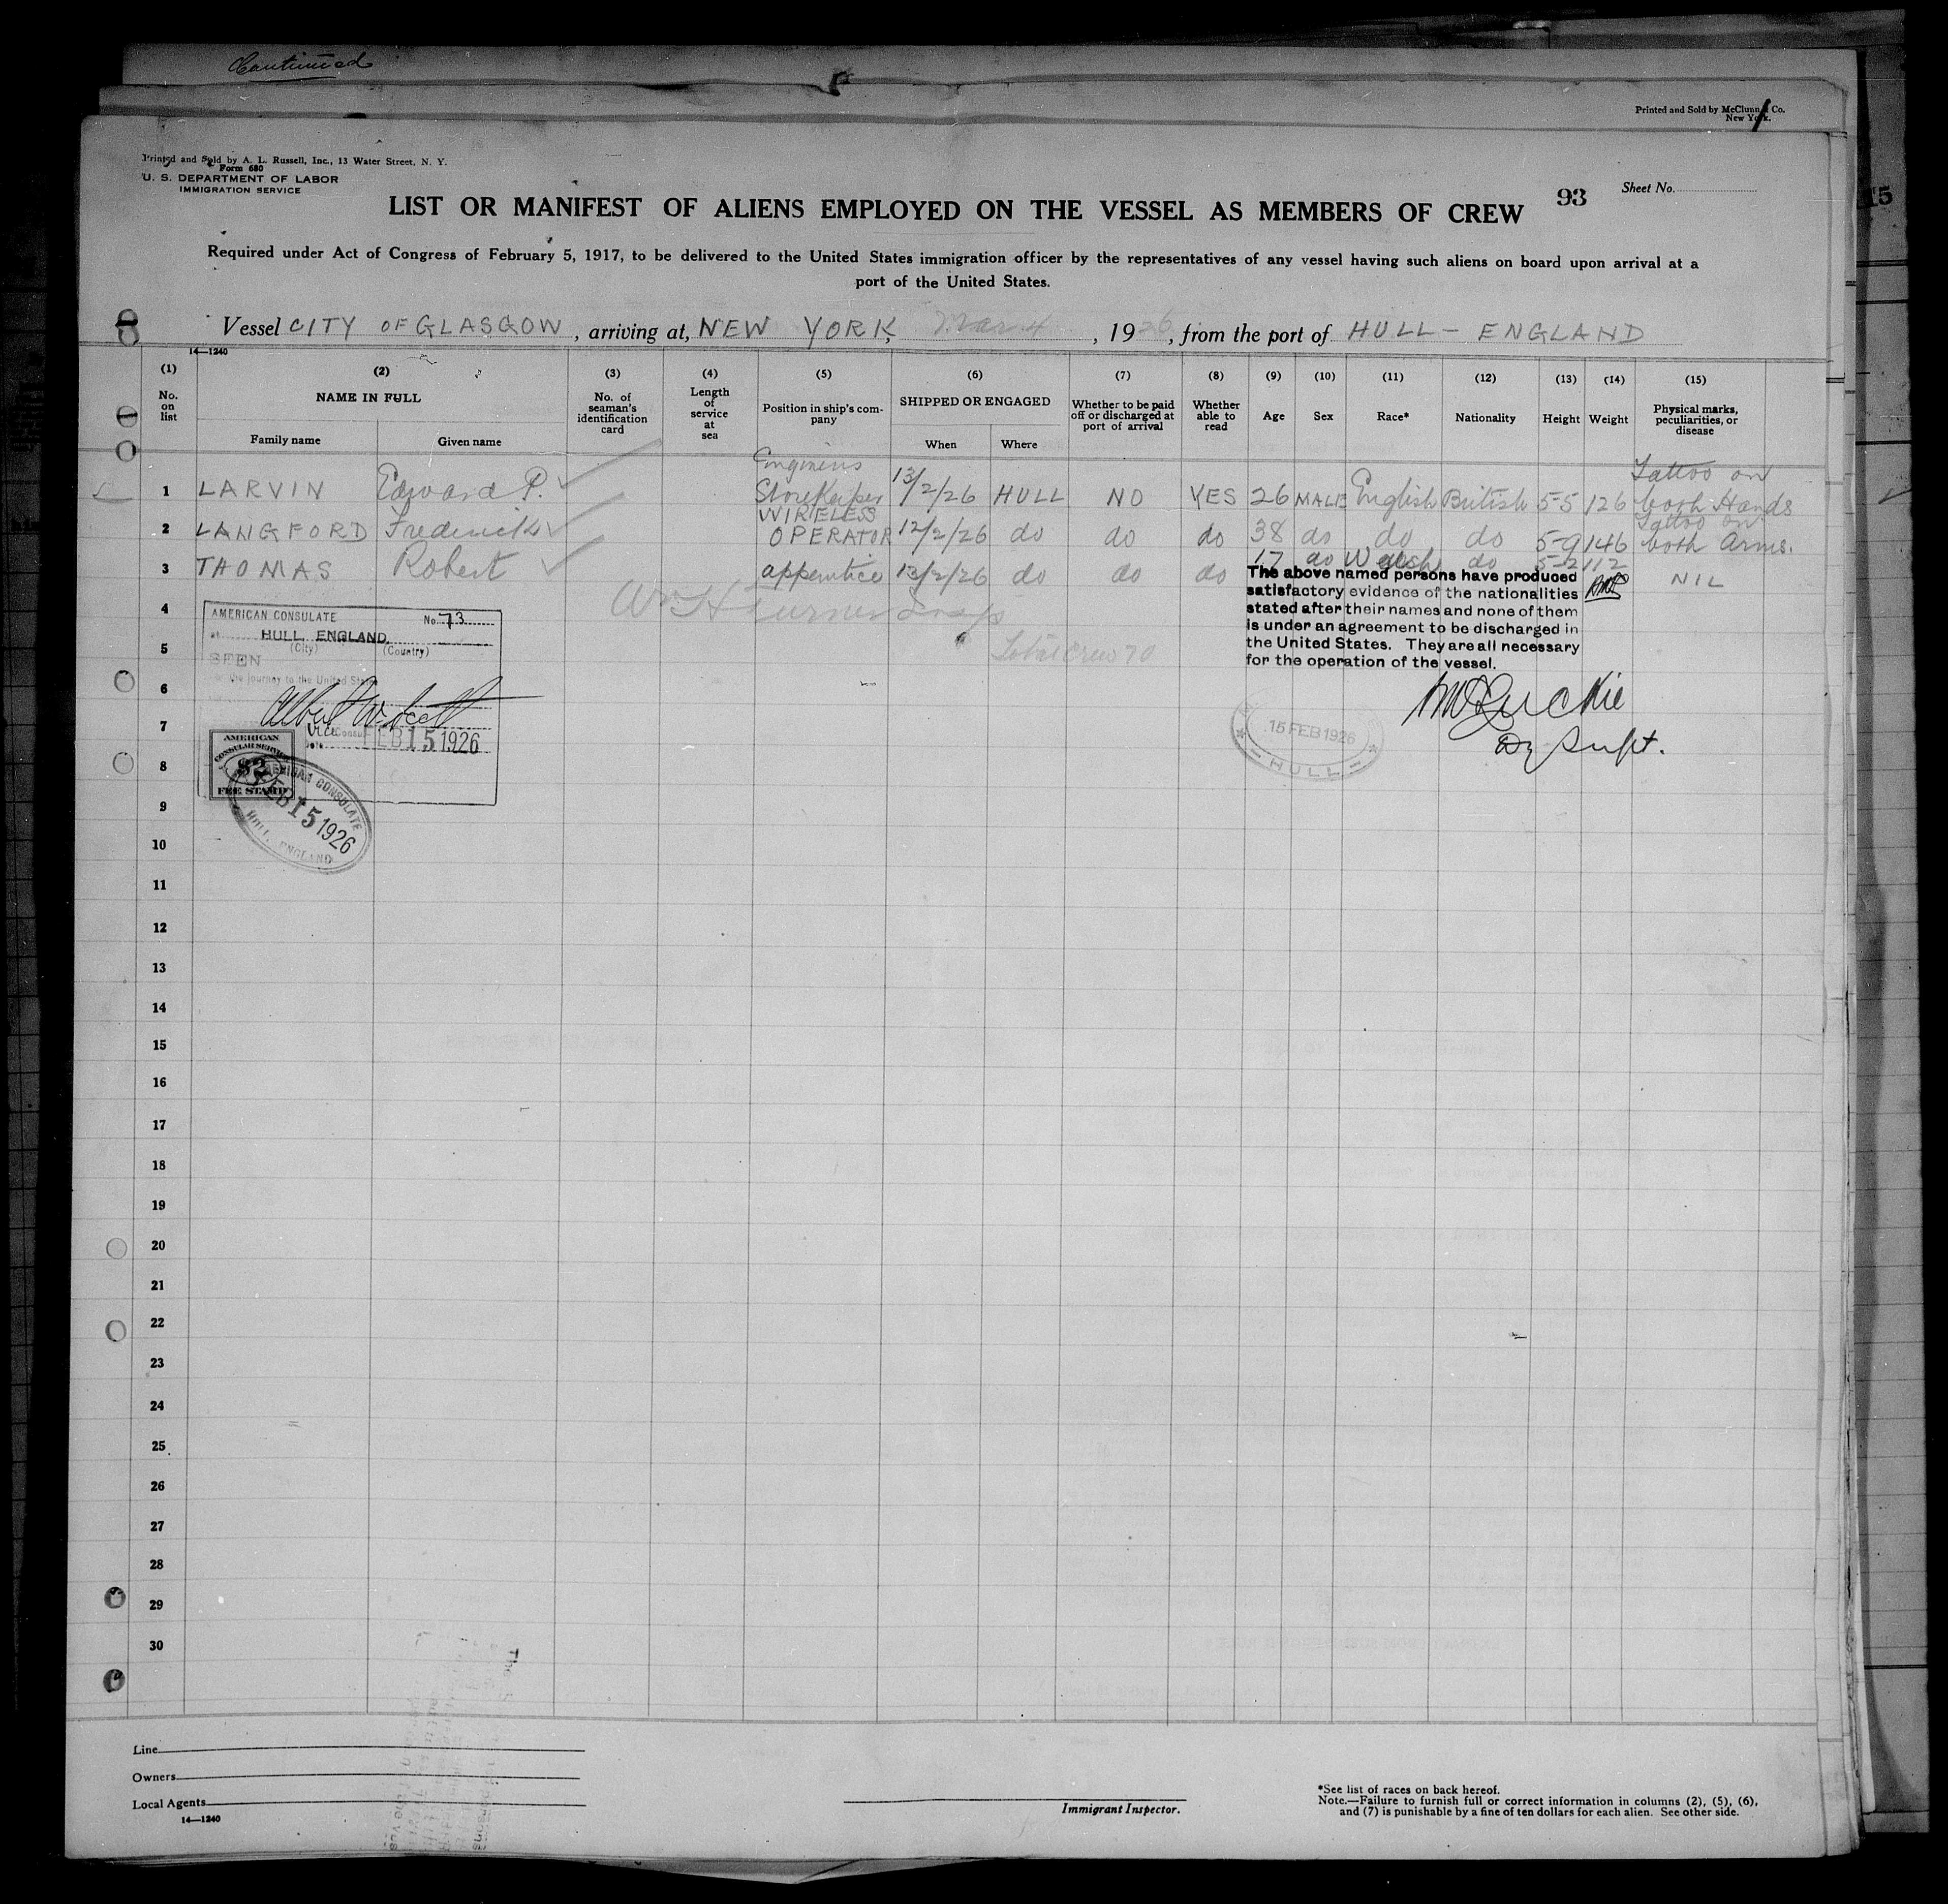 Continued
Printed and Sold by McClunn & Co.
New York.
Printed and Sold by A. L. Russell, Inc., 13 Water Street, N. Y.
Form 680
U. S. DEPARTMENT OF LABOR
IMMIGRATION SERVICE
Sheet No.
93
15
LIST OR MANIFEST OF ALIENS EMPLOYED ON THE VESSEL AS MEMBERS OF CREW
Required under Act of Congress of February 5, 1917, to be delivered to the United States immigration officer by the representatives of any vessel having such aliens on board upon arrival at a
port of the United States.
Vessel CITY OF GLASGOW, arriving at, NEW YORK, Mar 4, 1926, from the port of HULL - ENGLAND
14—1240
(1) (2) (3) (4) (5) (6) (7) (8) (9) (10) (11) (12) (13) (14) (15)
No. on list
NAME IN FULL
Family name
Given name
No. of seaman's identification card
Length of service at sea
Position in ship's company
SHIPPED OR ENGAGED
When
Where
Whether to be paid off or discharged at port of arrival
Whether able to read
Age
Sex
Race*
Nationality
Height
Weight
Physical marks, peculiarities, or disease
1 LARVIN Edward P. Engineers Storekeeper 13/2/26 HULL NO YES 26 MALE English British 5-5 126 Tattoo on both Hands
2 LANGFORD Frederick WIRELESS OPERATOR 12/2/26 do do do 38 do do do 5-9 146 Tattoo on both Arms.
3 THOMAS Robert apprentice 13/2/26 do do do 17 do Welsh do 5-2 112 NIL
The above named persons have produced
satisfactory evidence of the nationalities
stated after their names and none of them
is under an agreement to be discharged in
the United States. They are all necessary
for the operation of the vessel.
Wm H Turner Insp
Total Crew 70
Dy Supt.
15 FEB 1926
HULL
AMERICAN CONSULATE No. 73
at HULL, ENGLAND.
(City) (Country)
SEEN
for the journey to the United States
Vice Consul
Date FEB 15 1926
AMERICAN
CONSULAR SERVICE
$2
FEE STAMP
AMERICAN CONSULATE
FEB 15 1926
HULL, ENGLAND
4
5
6
7
8
9
10
11
12
13
14
15
16
17
18
19
20
21
22
23
24
25
26
27
28
29
30
Line
Owners
Local Agents
14—1240
Immigrant Inspector.
*See list of races on back hereof.
Note.—Failure to furnish full or correct information in columns (2), (5), (6),
and (7) is punishable by a fine of ten dollars for each alien. See other side.